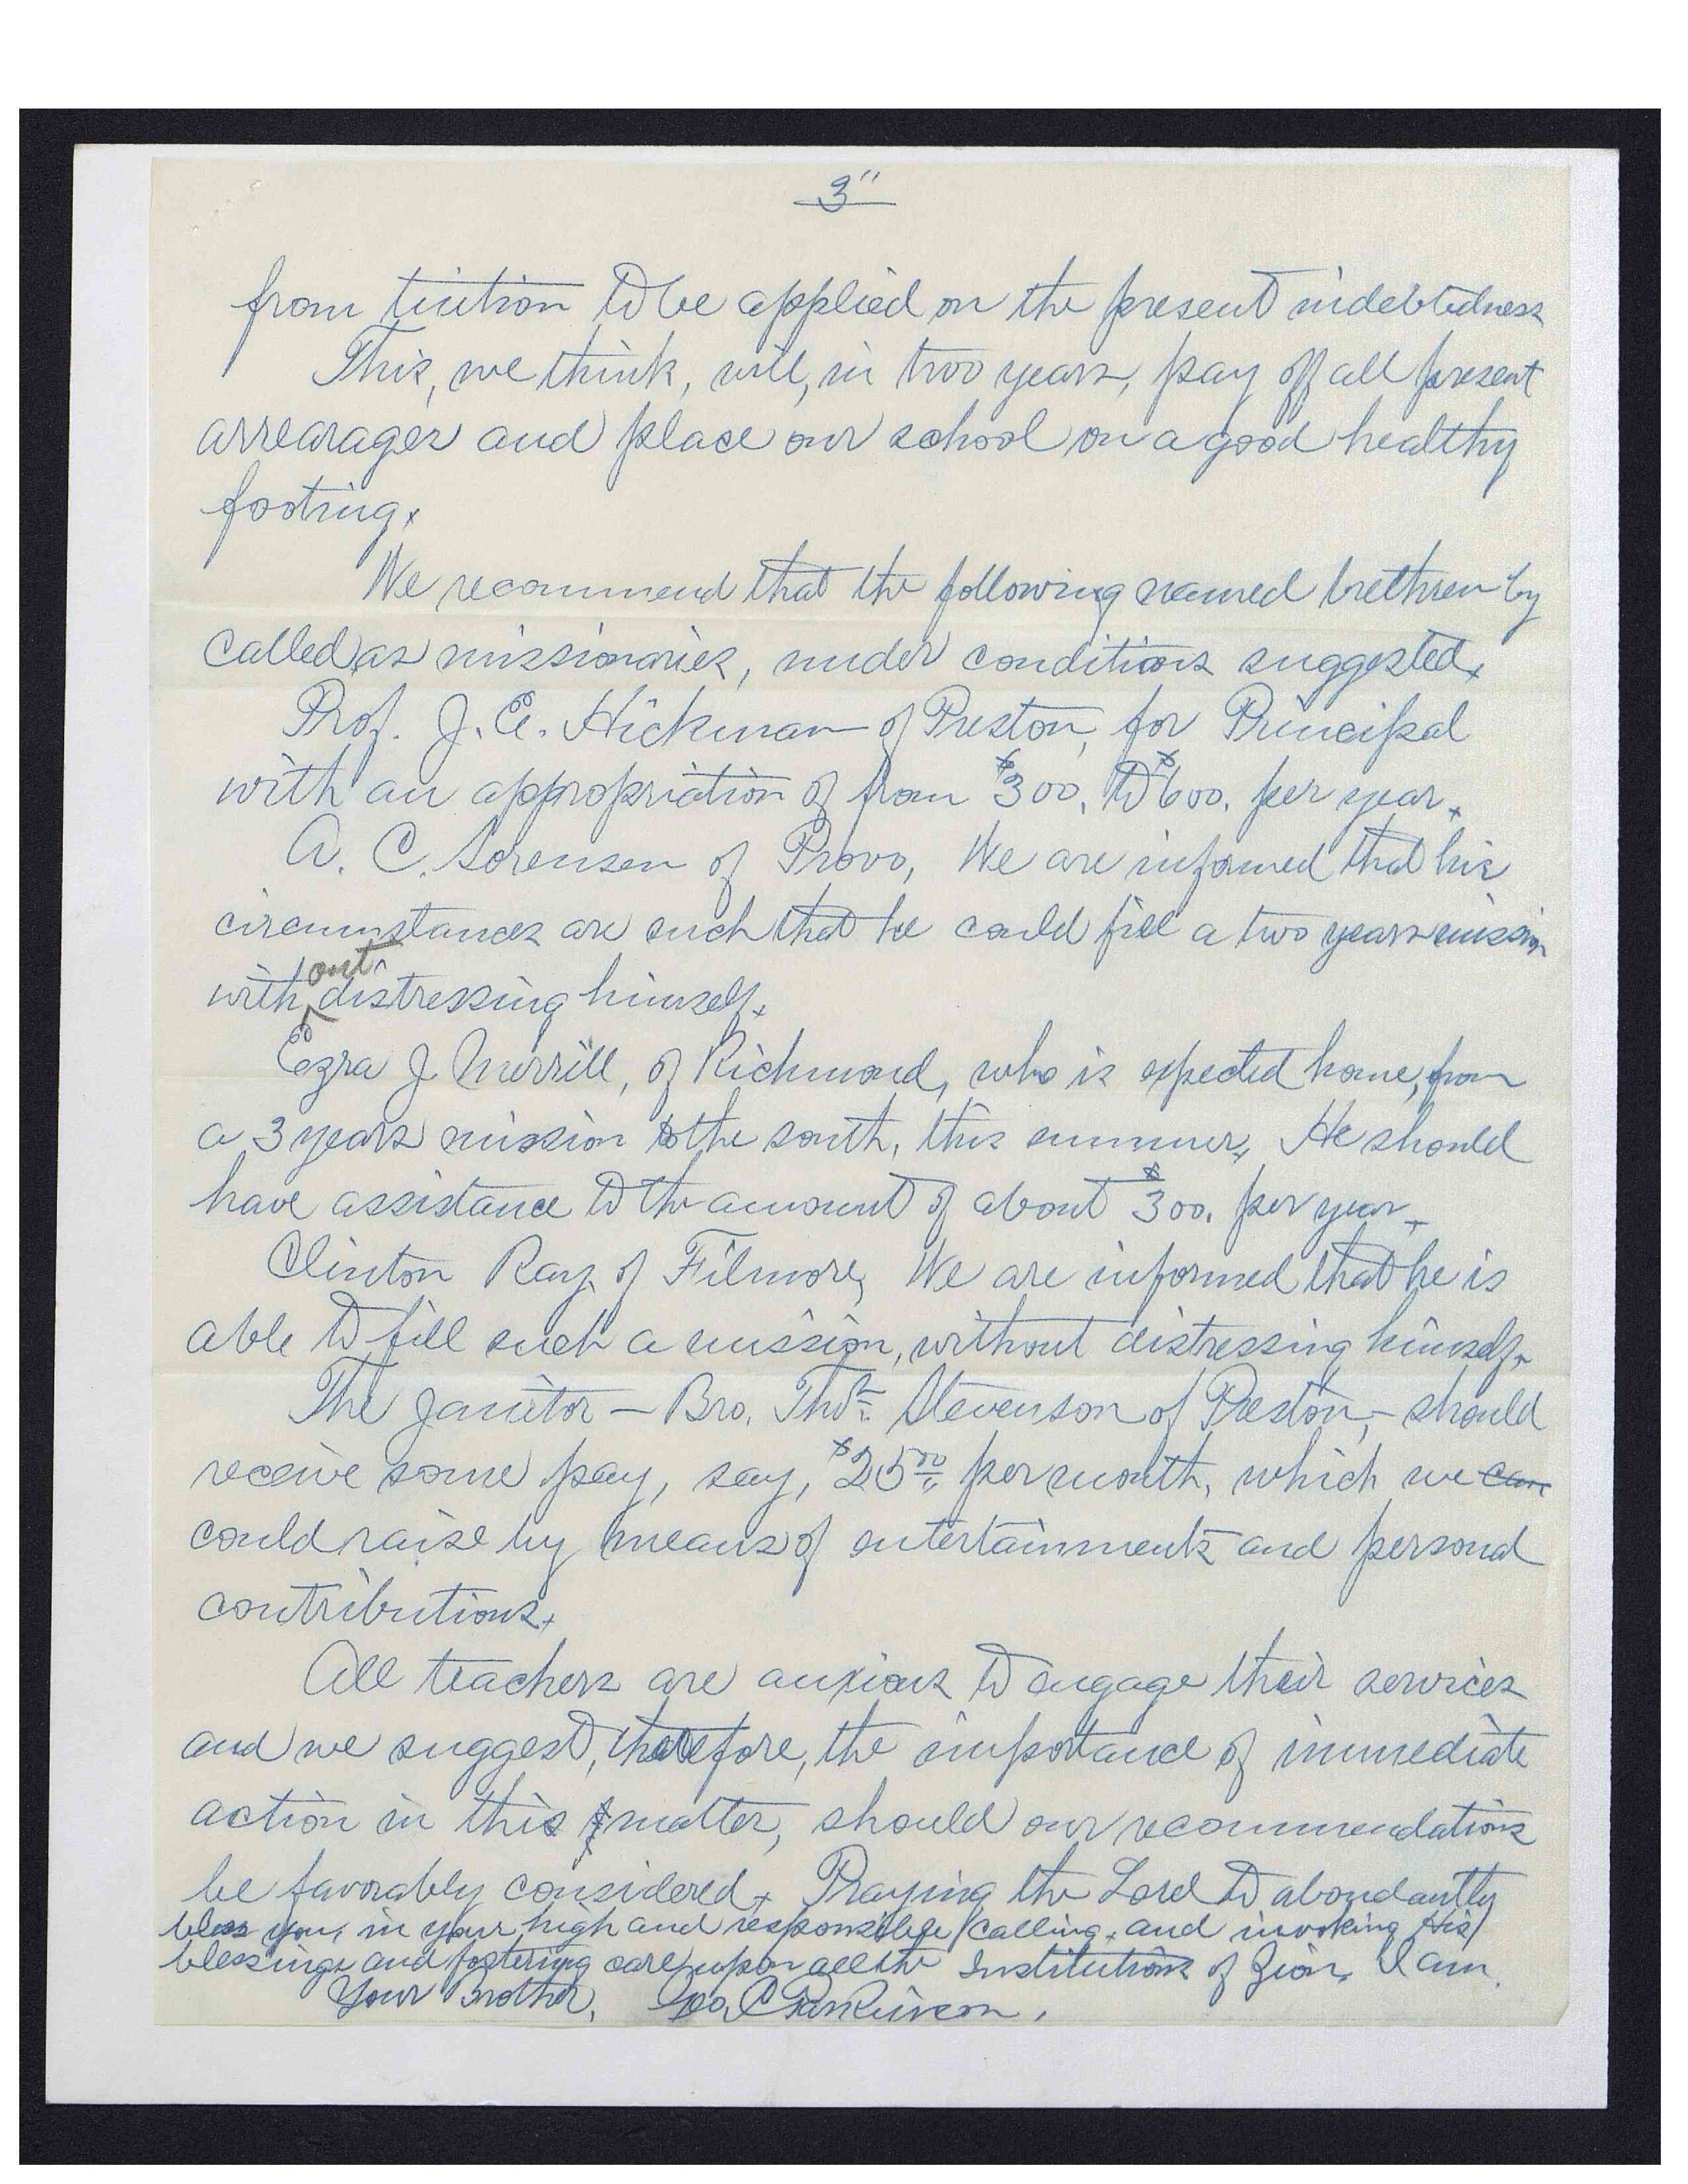 3"
from tiution to be applied on the present indebtedness
This, we think, will, in two years, pay off all present
arrearages and place our school on a good healthy
footing.
We recommend that the following named brethren by
called as missionaries, under conditions suggested.
Prof. J. E. Hickman of Preston, for Principal
with an appropriation of from $300. to $600. per year.
A. C. Sorensen of Provo, We are informed that his
circumstances are such that he could fill a two years mission
without distressing himself.
Ezra J Merrill, of Richmond, who is expected home, from
a 3 years mission to the south, this summer. He should
have assistance to the amount of about $300. per year.
Clinton Ray of Filmore, We are informed that he is
able to fill such a mission, without distressing himself.
The Janitor - Bro. Thos. Stevenson of Preston, - should
receive some pay, say, $25.00 per month, which we can
could raise by means of entertainments and personal
contributions.
All teachers are anxious to engage their services
and we suggest, therefore, the importance of immediate
action in this matter, should our recommendations
be favorably considered. Praying the Lord to abondantly
bless you, in your high and responsible calling, and invoking His
blessings and fostering care upon all the Institutions of Zion, I am.
Your Brother, Geo. C Parkinson.